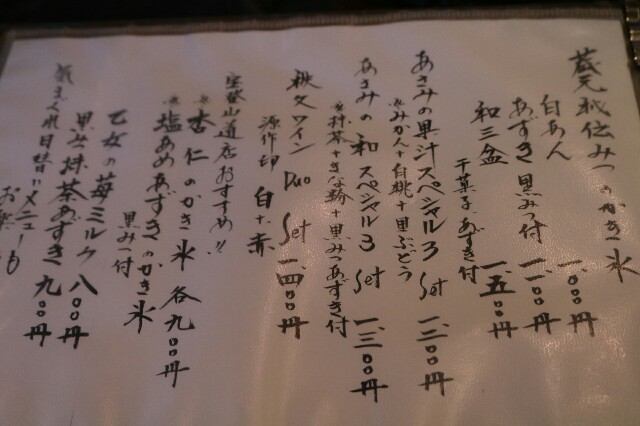 蔵元秘伝みつのかき氷
白あん 一、〇〇〇円
あずき 黒みつ付 一、一〇〇円
和三盆 一、五〇〇円
干菓子、あずき付
あさみの果汁スペシャル3 Set 一、三〇〇円
※みかん+白桃+黒ぶどう
あさみの和スペシャル3 Set 一、三〇〇円
※抹茶+きな粉+黒みつあずき付
秩父ワイン Duo Set 一、四〇〇円
源作印 白+赤
宝登山道店おすすめ!!
※杏仁のかき氷 各九〇〇円
※塩あめあずきのかき氷
黒みつ付
乙女の苺ミルク 八〇〇円
黒岩抹茶あずき 九〇〇円
気まぐれ日替りメニューも
お楽